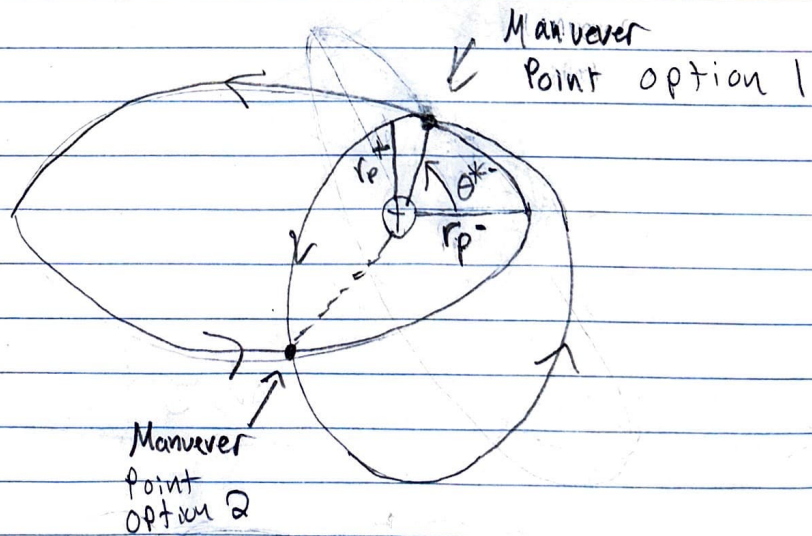 Manuever
Point option 1
rp+
θ*-
rp-
Manuever
Point
option 2